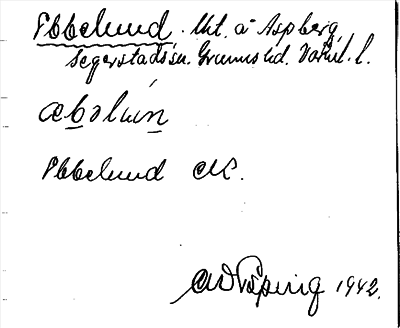 Ebbelund. Utt. å Aspberg,
Segerstads sn. Grums hd. Värml. l.
æbəlun
Ebbelund ck.
1942.